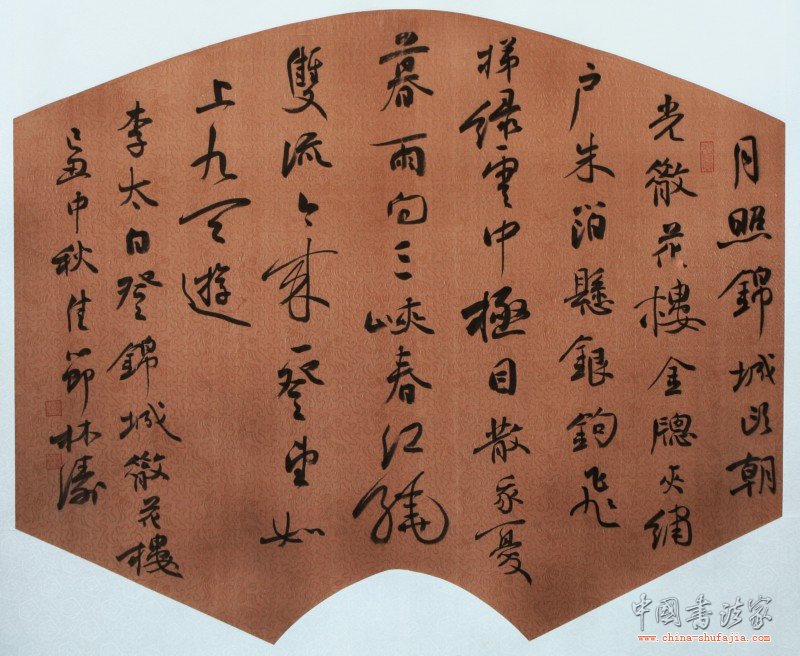 日照錦城頭朝
光散花樓金牎夾繡
户朱箔懸銀鉤飛
梯緑雲中極目散我憂
暮雨向三峽春江繞
雙流今来一登望如
上九天遊
李太白登錦城散花樓
己丑中秋佳節林濤
中國書法家
www.china-shufajia.com